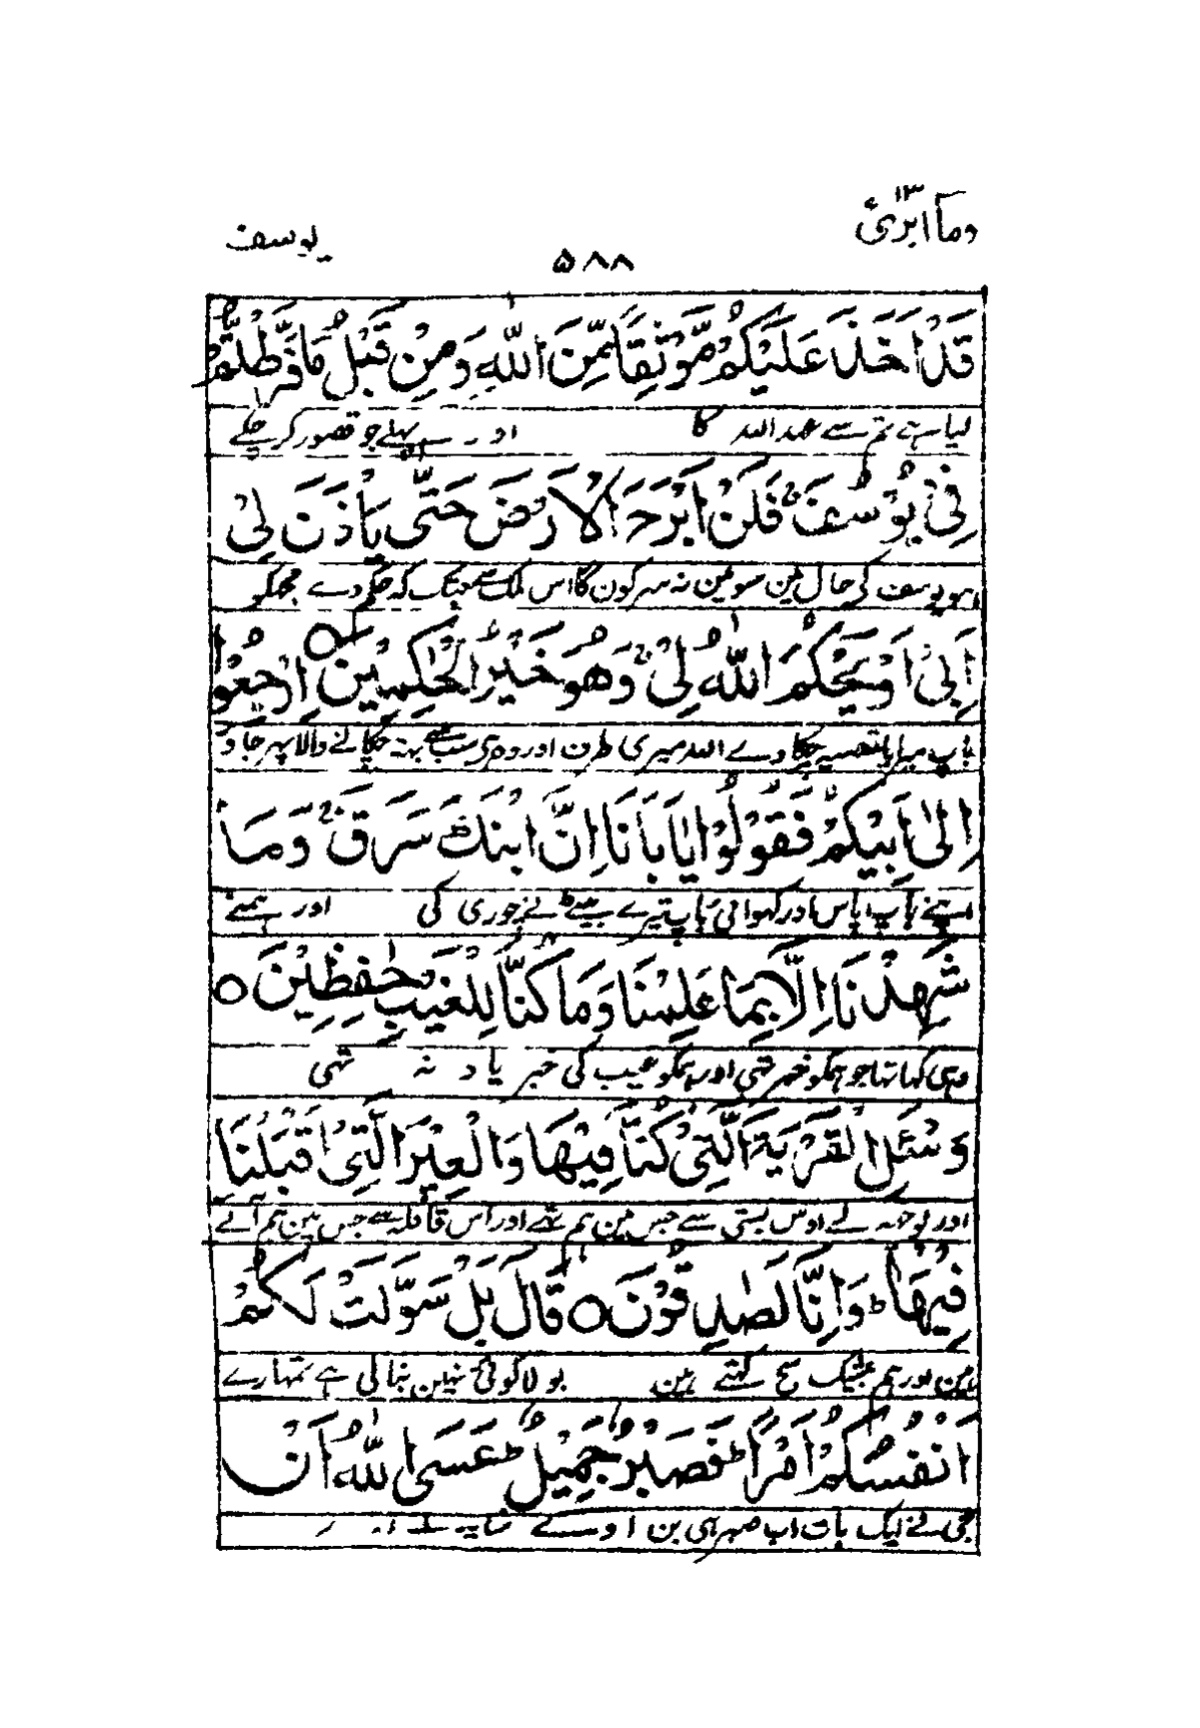 وما ابرئ ١٣
٥٨٨
يوسف
قَدْ اَخَذَ عَلَيْكُمْ مَّوْثِقًا مِّنَ اللّٰهِ وَمِنْ قَبْلُ مَا فَرَّطْتُّمْ
لیا ہے تم سے عہد اللہ کا اور پہلے جو قصور کر چکے
فِيْ يُوْسُفَ ۚ فَلَنْ اَبْرَحَ الْاَرْضَ حَتّٰى يَاْذَنَ لِيْ
ہو یوسف کی حال مین سو مین نہ سرکون گا اس ملک سے جبتک کہ حکم دے مجھکو
اَبِيْ اَوْ يَحْكُمَ اللّٰهُ لِيْ ۚ وَهُوَ خَيْرُ الْحٰكِمِيْنَ ○ اِرْجِعُوْا
باپ میرا یا قضیہ چکا دے اللہ میری طرف اور وہ ہی سب سے بہتر چکانے والا پہر جاؤ
اِلٰى اَبِيْكُمْ فَقُوْلُوْا يٰۤاَبَانَا اِنَّ ابْنَكَ سَرَقَ ۚ وَمَا
اپنے باپ پاس اور کہو ای باپ تیرے بیٹے نے چوری کی اور ہمنے
شَهِدْنَا اِلَّا بِمَا عَلِمْنَا وَمَا كُنَّا لِلْغَيْبِ حٰفِظِيْنَ ○
وہی کہا تہا جو ہمکو خبر تہی اور ہمکو غیب کی خبر یاد نہ تہی
وَسْـَٔلِ الْقَرْيَةَ الَّتِيْ كُنَّا فِيْهَا وَالْعِيْرَ الَّتِيْ اَقْبَلْنَا
اور پوچہ لے اوس بستی سے جس مین ہم تہے اور اس قافلہ سے جس مین ہم آئے
فِيْهَا ؕ وَاِنَّا لَصٰدِقُوْنَ ○ قَالَ بَلْ سَوَّلَتْ لَكُمْ
ہین اور ہم بیشک سچ کہتے ہین بولا کوئی نہین بنالی ہے تمہارے
اَنْفُسُكُمْ اَمْرًا ؕ فَصَبْرٌ جَمِيْلٌ ؕ عَسَى اللّٰهُ اَنْ
جی نے ایک بات اب صبر ہی بن آوے